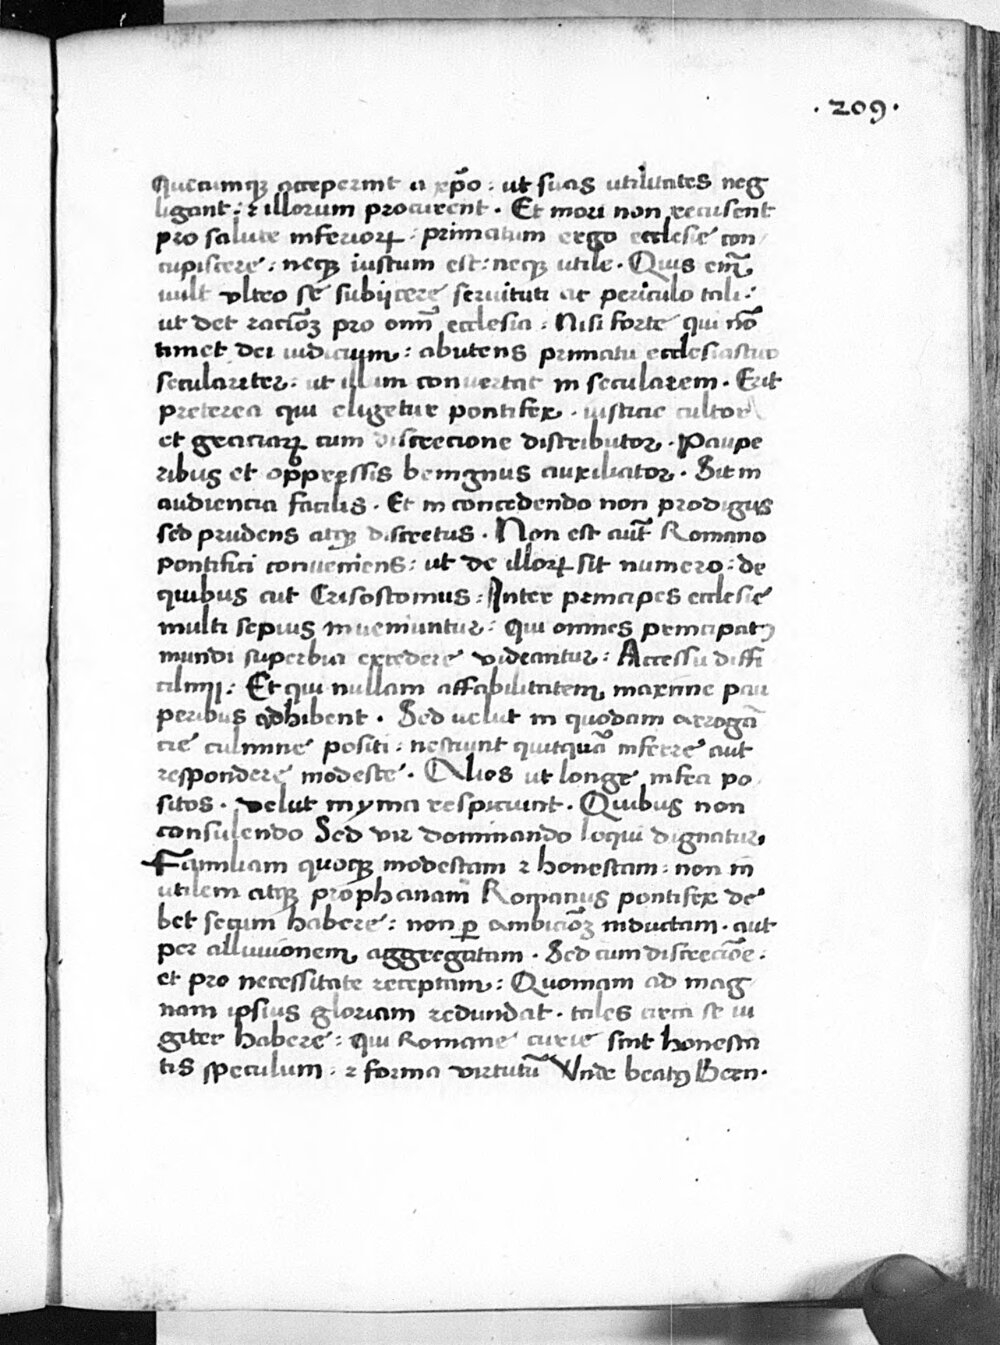 · 209 ·
Quecumqꝫ acceperint a xp̄o : ut suas utilitates neg
ligant : ⁊ illorum procurent · Et mori non recusent
pro salute inferioꝝ : primatum ergo ecclesie con
cupiscere : neqꝫ iustum est : neqꝫ utile · Quis em̄
uult vltro se subijcere seruituti ac periculo tali :
ut det racio᷒ꝫ pro omī ecclesia : Nisi forte qui nō
timet dei iudicium : abutens primatu ecclesiastico
seculariter : ut illum conuertat in secularem · Erit
preterea qui eligetur pontifex · iusticie cultor
et graciaꝝ cum discrecione distributor · Paupe
ribus et oppressis benignus auxiliator · Sit in
audiencia facilis · Et in concedendo non prodigus
sed prudens atqꝫ discretus · Non est aut̄ Romano
pontifici conueniens : ut de illoꝝ sit numero : de
quibus cut Crisostomus : Inter principes ecclesie
multi sepius inueniuntur : Qui omnes principatꝰ
mundi superbia excedere videantur : Accessu diffi
cilimi : Et qui nullam affabilitatem maxime pau
peribus adhibent · Sed uelut in quodam arrogā
cie culmine positi : nesciunt quicquā inferre aut
respondere modeste · Alios ut longe infra po
sitos · velut inyma respiciunt · Quibus non
consulendo Sed vix dominando loqui dignatur
Familiam quoqꝫ modestam ⁊ honestam : non in
utilem atqꝫ prophanam Romanus pontifex de
bet secum habere : non ꝑ ambicio᷒ꝫ inductam · aut
per alluuionem aggregatam · Sed cum discrecio᷒e :
et pro necessitate receptam : Quoniam ad mag
nam ipsius gloriam redundat · tales circa se iu
giter habere : qui Romane curie sint honesta
tis speculum : ⁊ forma virtutū Vnde beatꝰ Bern ·